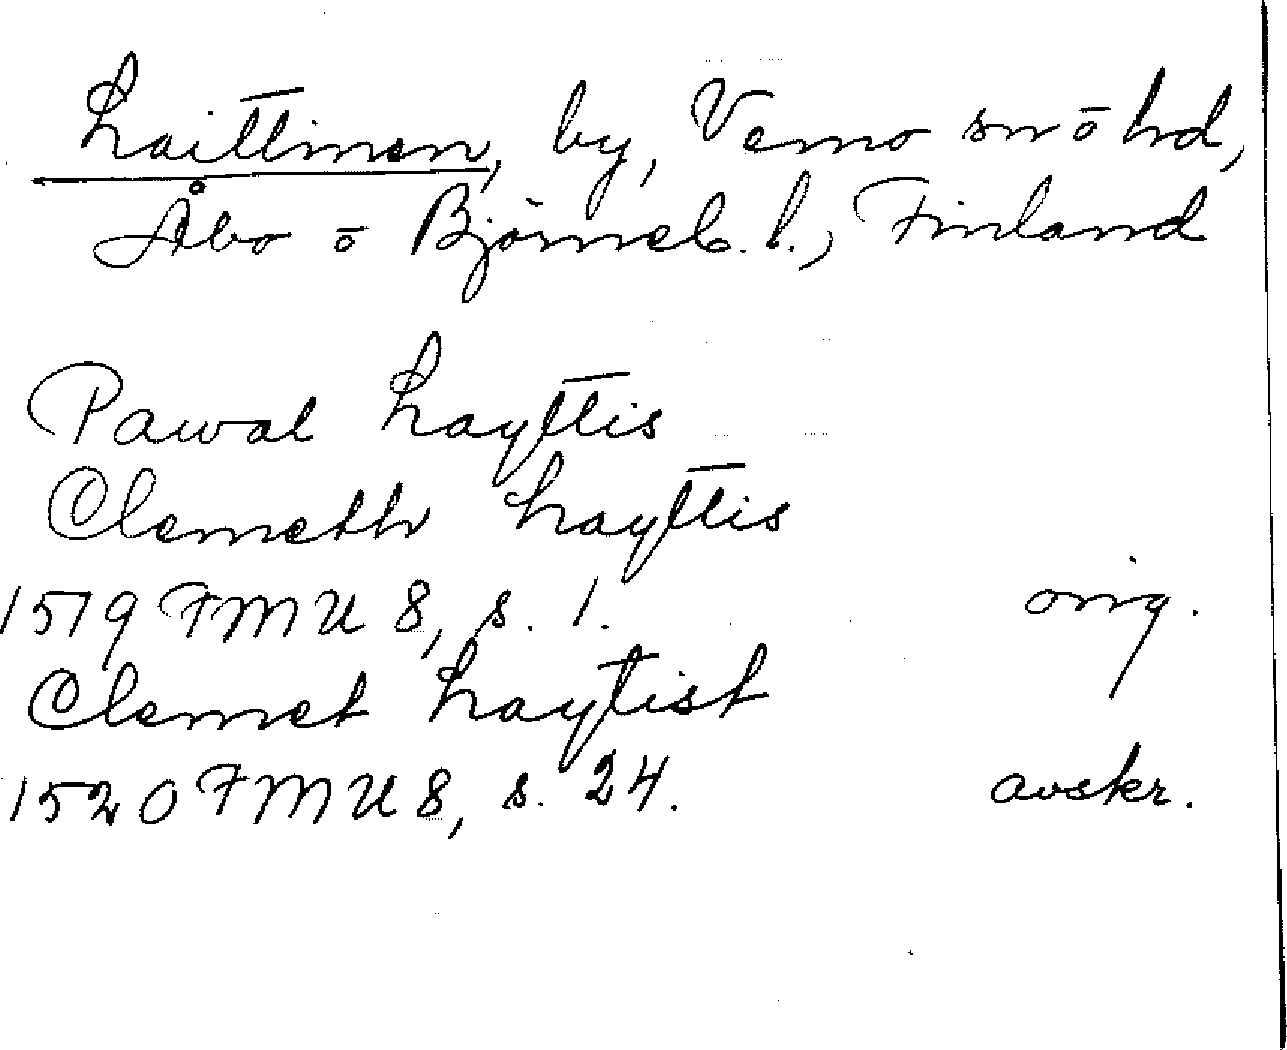 Laittinen, by, Vemo sn ō hd,
Åbo ō Björneb. l., Finland
Pawal Layttis
Clemeth Layttis
1519 FMU 8, s. 1. orig.
Clemet Laytist
1520 FMU 8, s. 24. avskr.